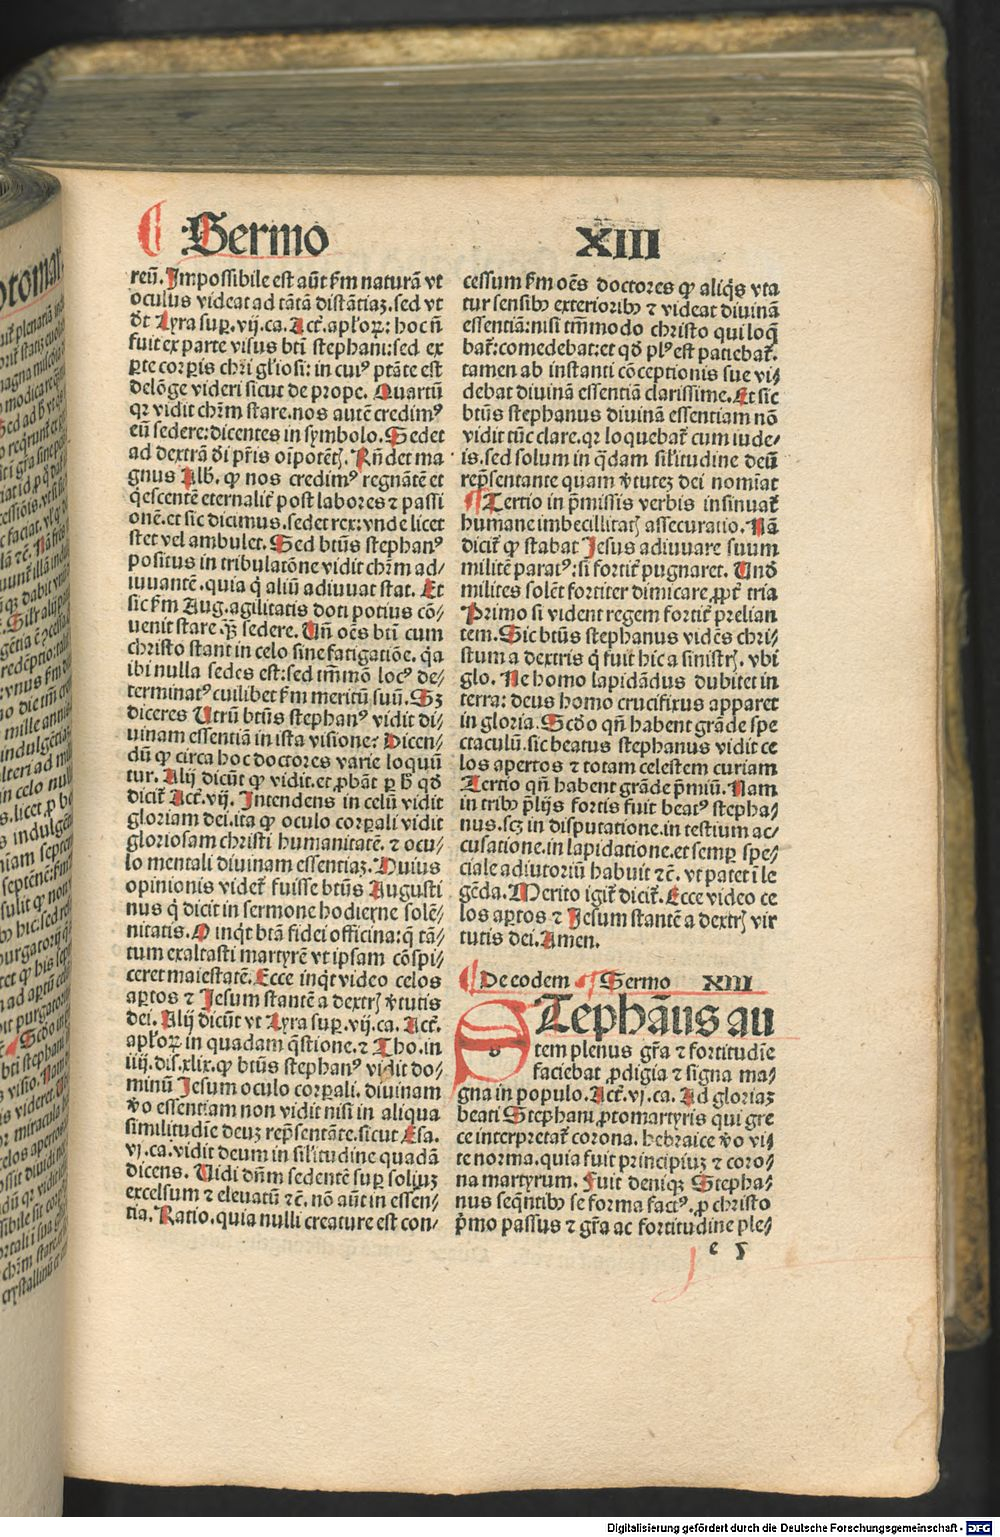 Sermo XIII
reū. Impossibile est aūt ẜm naturā vt
oculus videat ad tātā distātiaꝫ. sed vt
dt Lyra suꝑ. vij. ca. Act̄. apl'oꝝ: hoc n̄
fuit ex parte visus bt̄i stephani: sed ex
ꝑte corꝑis chr̄i gl'iosi: in cuiꝰ ptāte est
delōge videri sicut de prope. Quartū
qꝛ vidit chr̄m stare. nos autē credimꝰ
eū sedere: dicentes in symbolo. Sedet
ad dextrā di pr̄is oīpotētꝭ. Rn̄det ma
gnus Alb. ꝙ nos credimꝰ regnātē et
q̇escentē eternalit̄ post labores ⁊ passi
onē. et sic dicimus. sedet rex: vnde licet
stet vel ambulet. Sed bt̄us stephanꝰ
positus in tribulatōne vidit chr̄m ad⸗
iuuantē. quia q̇ aliū adiuuat stat. Et
sic ẜm Aug. agilitatis doti potius cō⸗
uenit stare ꝙ̄ sedere. Un̄ oēs bt̄i cum
christo stant in celo sine fatigatiōe. q̇a
ibi nulla sedes est: sed tm̄mō locꝰ de⸗
terminatꝰ cuilibet ẜm meritū suū. Sꝫ
diceres Utrū bt̄us stephanꝰ vidit di⸗
uinam essentiā in ista visione? Dicen⸗
dū ꝙ circa hoc doctores varie loquū
tur. Alij dicūt ꝙ vidit. et ꝓbāt ꝑ h̄ qd̄
dicit̄ Act̄. vij. Intendens in celū vidit
gloriam dei. ita ꝙ oculo corꝑali vidit
gloriosam christi humanitatē. ⁊ ocu⸗
lo mentali diuinam essentiaꝫ. Huius
opinionis videt̄ fuisse bt̄us Augusti
nus q̇ dicit in sermone hodierne solē⸗
nitatis. O inq̇t bt̄a fidei officina: q̄ tā⸗
tum exaltasti martyrē vt ipsam cōspi⸗
ceret maiestatē. Ecce inq̇t video celos
aꝑtos ⁊ Jesum stantē a dextrꝭ v̇tutis
dei. Alij dicūt vt Lyra suꝑ. vij. ca. Act̄.
apl'oꝝ in quadam q̄stione. ⁊ Tho. in
iiij. dis. xlix. ꝙ bt̄us stephanꝰ vidit do⸗
minū Jesum oculo corꝑali. diuinam
v̇o essentiam non vidit nisi in aliqua
similitudīe deuꝫ rep̄sentāte. sicut Esa.
vj. ca. vidit deum in sil'itudine quadā
dicens. Uidi dn̄m sedentē suꝑ soliuꝫ
excelsum ⁊ eleuatū ⁊c̄. nō aūt in essen⸗
tia. Ratio. quia nulli creature est con⸗
cessum ẜm oēs doctores ꝙ aliq̇s vta
tur sensibꝰ exterioribꝰ ⁊ videat diuinā
essentiā: nisi tm̄modo christo qui loq̄
bat̄: comedebat: et qd̄ plꝰ est patiebat̄.
tamen ab instanti cōceptionis sue vi⸗
debat diuinā essentiā clarissime. Et sic
bt̄us stephanus diuinā essentiam nō
vidit tūc clare. qꝛ loquebat̄ cum iude⸗
is. sed solum in q̄dam sil'itudine deū
rep̄sentante quam v̇tuteꝫ dei nomiat
Tertio in p̄missis verbis insinuat̄
humane imbecillitatꝭ assecuratio. Nā
dicit̄ ꝙ stabat Jesus adiuuare suum
militē paratꝰ: si fortit̄ pugnaret. Und̄
milites solēt fortiter dimicare ꝓpt̄ tria
Primo si vident regem fortit̄ prelian
tem. Sic bt̄us stephanus vidēs chri⸗
stum a dextris q̇ fuit hic a sinistrꝭ. vbi
glo. Ne homo lapidādus dubitet in
terra: deus homo crucifixus apparet
in gloria. Scd̄o qn̄ habent grāde spe
ctaculū. sic beatus stephanus vidit ce
los apertos ⁊ totam celestem curiam
Tertio qn̄ habent grāde p̄miū. Nam
in tribꝰ p̄lijs fortis fuit beatꝰ stepha⸗
nus. scꝫ in disputatione. in testium ac⸗
cusatione. in lapidatione. et semꝑ spe⸗
ciale adiutoriū habuit ⁊c̄. vt patet ī le
gēda. Merito igit̄ dicit̄. Ecce video ce
los aꝑtos ⁊ Jesum stantē a dextrꝭ vir
tutis dei. Amen.
De eodem Sermo XIII
STephāus au
tem plenus gr̄a ⁊ fortitudīe
faciebat ꝓdigia ⁊ signa ma⸗
gna in populo. Act̄. vj. ca. Ad gloriaꝫ
beati Stephani ꝓtomartyris qui gre
ce interpretat̄ corona. hebraice v̇o vi⸗
te norma. quia fuit principiuꝫ ⁊ coro⸗
na martyrum. Fuit deniqꝫ Stepha⸗
nus seq̄ntibꝰ se forma factꝰ. ꝓ christo
ṗmo passus ⁊ gr̄a ac fortitudine ple⸗
e 5
Digitalisierung gefördert durch die Deutsche Forschungsgemeinschaft - DFG